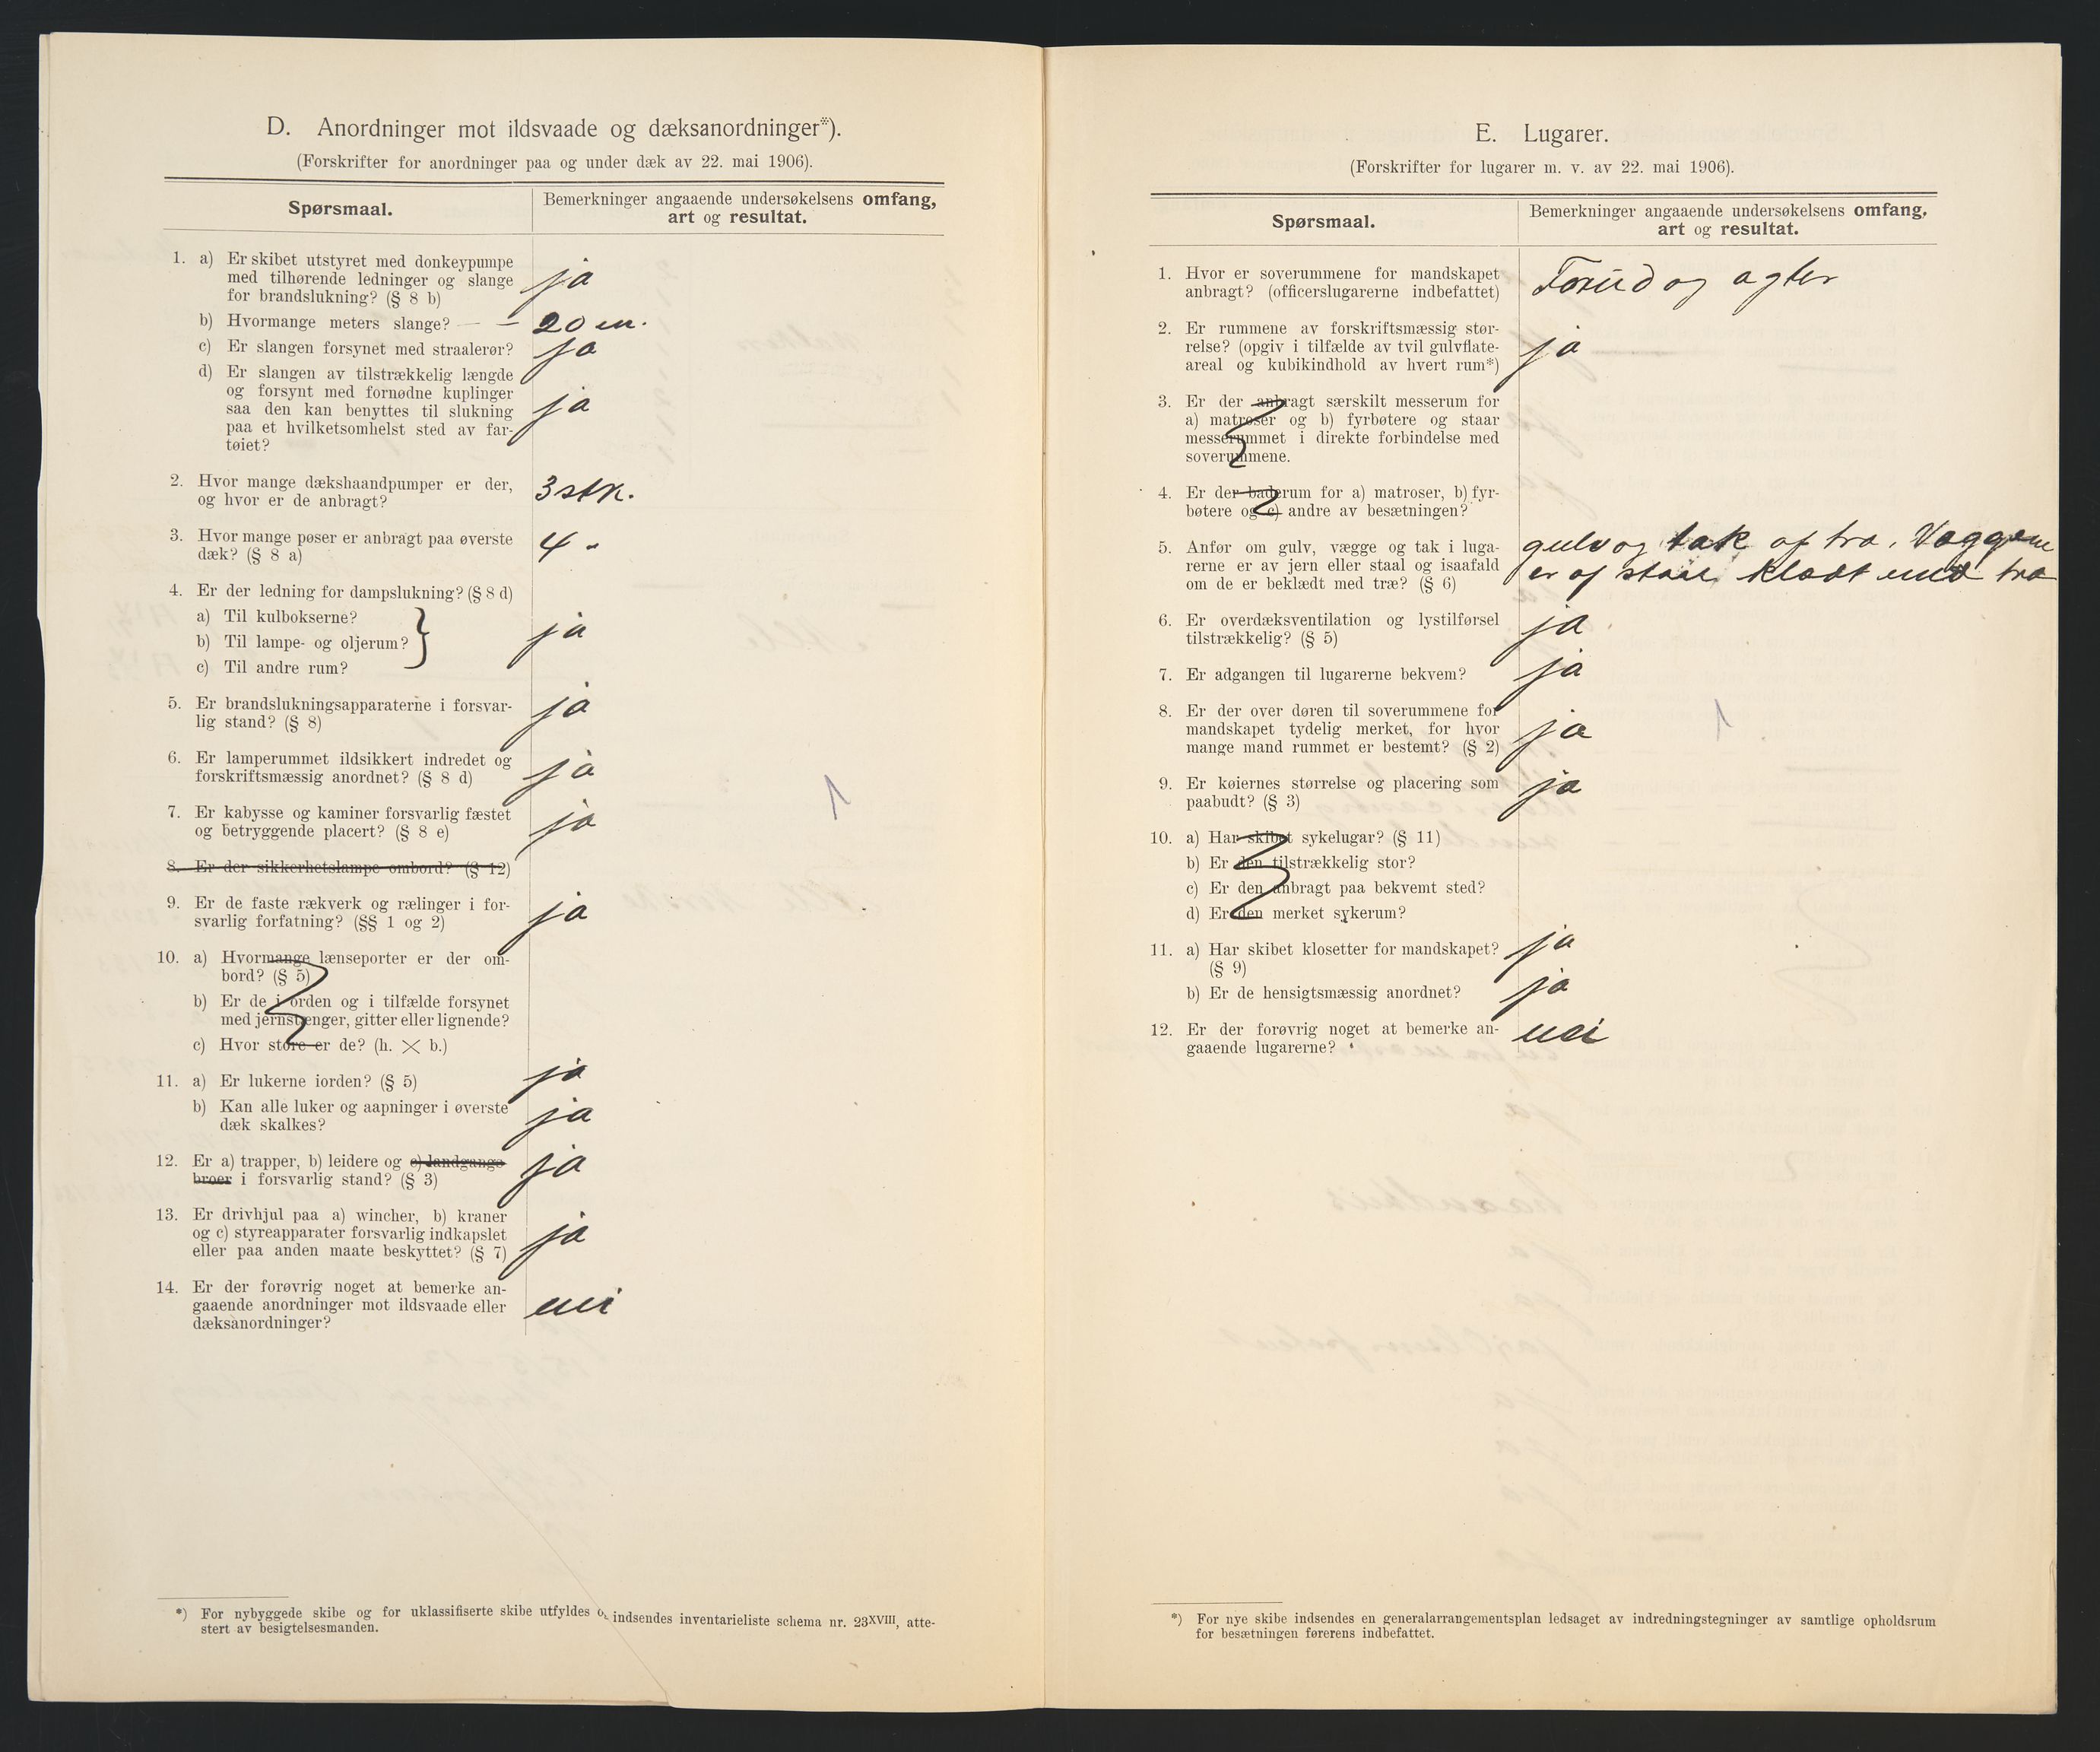 D. Anordninger mot ildsvaade og dæksanordninger*).
(Forskrifter for anordninger paa og under dæk av 22. mai 1906).
Spørsmaal.
Bemerkninger angaaende undersøkelsens omfang,
art og resultat.
1. a) Er skibet utstyret med donkeypumpe
med tilhørende ledninger og slange
for brandslukning? (§ 8 b)
ja
b) Hvormange meters slange? — —
20 m.
c) Er slangen forsynet med straalerør?
ja
d) Er slangen av tilstrækkelig længde
og forsynt med fornødne kuplinger
saa den kan benyttes til slukning
paa et hvilketsomhelst sted av far-
tøiet?
ja
2. Hvor mange dækshaandpumper er der,
og hvor er de anbragt?
3 stk.
3. Hvor mange pøser er anbragt paa øverste
dæk? (§ 8 a)
4 "
4. Er der ledning for dampslukning? (§ 8 d)
a) Til kulbokserne?
b) Til lampe- og oljerum?
c) Til andre rum?
ja
5. Er brandslukningsapparaterne i forsvar-
lig stand? (§ 8)
ja
6. Er lamperummet ildsikkert indredet og
forskriftsmæssig anordnet? (§ 8 d)
ja
7. Er kabysse og kaminer forsvarlig fæstet
og betryggende placert? (§ 8 e)
ja
1
8. Er der sikkerhetslampe ombord? (§ 12)
9. Er de faste rækverk og rælinger i for-
svarlig forfatning? (§§ 1 og 2)
ja
10. a) Hvormange lænseporter er der om-
bord? (§ 5)
b) Er de i orden og i tilfælde forsynet
med jernstænger, gitter eller lignende?
c) Hvor store er de? (h. × b.)
11. a) Er lukerne iorden? (§ 5)
ja
b) Kan alle luker og aapninger i øverste
dæk skalkes?
ja
12. Er a) trapper, b) leidere og c) landgangs
broer i forsvarlig stand? (§ 3)
ja
13. Er drivhjul paa a) wincher, b) kraner
og c) styreapparater forsvarlig indkapslet
eller paa anden maate beskyttet? (§ 7)
ja
14. Er der forøvrig noget at bemerke an-
gaaende anordninger mot ildsvaade eller
dæksanordninger?
nei
*) For nybyggede skibe og for uklassifiserte skibe utfyldes indsendes inventarieliste schema nr. 23XVIII, atte-
stert av besigtelsesmanden.
E. Lugarer.
(Forskrifter for lugarer m. v. av 22. mai 1906).
Spørsmaal.
Bemerkninger angaaende undersøkelsens omfang,
art og resultat.
1. Hvor er soverummene for mandskapet
anbragt? (officerslugarerne indbefattet)
Forud og agter
2. Er rummene av forskriftsmæssig stør-
relse? (opgiv i tilfælde av tvil gulvflate-
areal og kubikindhold av hvert rum*)
ja
3. Er der anbragt særskilt messerum for
a) matroser og b) fyrbøtere og staar
messerummet i direkte forbindelse med
soverummene.
4. Er der baderum for a) matroser, b) fyr-
bøtere og c) andre av besætningen?
5. Anfør om gulv, vægge og tak i luga-
rerne er av jern eller staal og isaafald
om de er beklædt med træ? (§ 6)
gulv og tak af træ. Væggene
er af staal klædt med træ
6. Er overdæksventilation og lystilførsel
tilstrækkelig? (§ 5)
ja
7. Er adgangen til lugarerne bekvem?
ja
8. Er der over døren til soverummene for
mandskapet tydelig merket, for hvor
mange mand rummet er bestemt? (§ 2)
ja
1
9. Er køiernes størrelse og placering som
paabudt? (§ 3)
ja
10. a) Har skibet sykelugar? (§ 11)
b) Er den tilstrækkelig stor?
c) Er den anbragt paa bekvemt sted?
d) Er den merket sykerum?
11. a) Har skibet klosetter for mandskapet?
(§ 9)
ja
b) Er de hensigtsmæssig anordnet?
ja
12. Er der forøvrig noget at bemerke an-
gaaende lugarerne?
nei
*) For nye skibe indsendes en generalarrangementsplan ledsaget av indredningstegninger av samtlige opholdsrum
for besætningen førerens indbefattet.